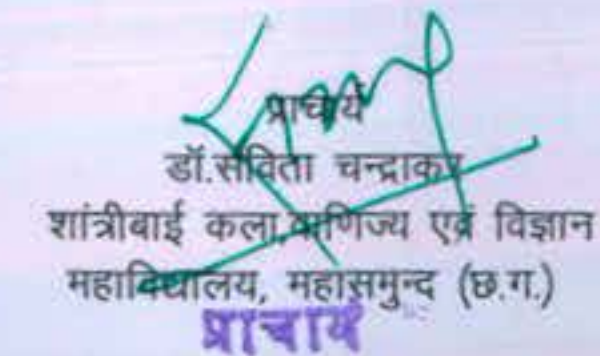 प्राचार्य
डॉ.सविता चन्द्राकर
शांत्रीबाई कला,वाणिज्य एवं विज्ञान
महाविद्यालय, महासमुन्द (छ.ग.)
प्राचार्य